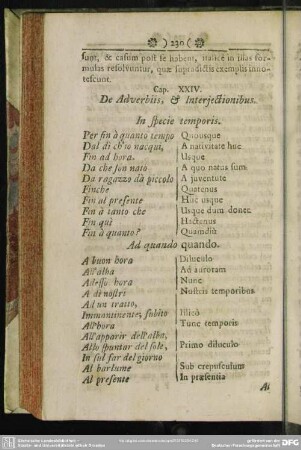 ) 230 (
sunt, & casum post se habent, italicè in illas for-
mulas resolvuntur, quæ supradictis exemplis inno-
tescunt.
Cap. XXIV.
De Adverbiis, & Interjectionibus.
In specie temporis.
Per fin à quanto tempo Quousque
Dal dì ch'io nacqui, A nativitate huc
Fin ad hora. Usque
Da che son nato A quo natus sum
Da ragazzo dà piccolo A juventute
Finche Quatenus
Fin al presente Huc usque
Fin à tanto che Usque dum donec
Fin qui Hactenus
Fin à quanto? Quamdiù
Ad quando quando.
A buon hora Diluculo
All'alba Ad aurotam
Adesso hora Nunc
A di nostri Nostris temporibus
Ad un tratto,
Immantinente, subito Illicò
All'hora Tunc temporis
All'apparir dell'alba,
Allo spuntar del sole, Primo diluculo
In sul far del giorno
Al barlume Sub crepusculum
Al presente In præsentia
Al